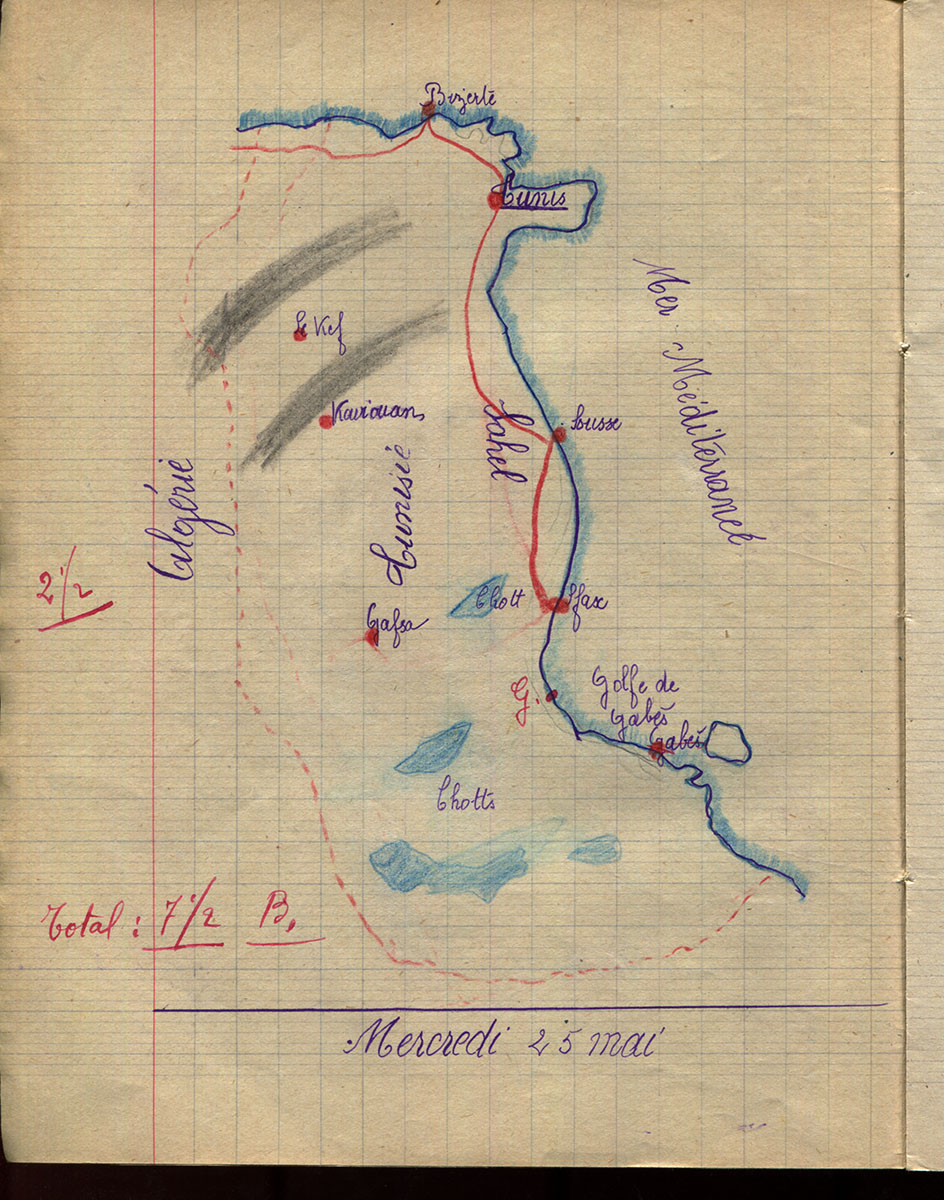 Bizerte
Tunis
Mer Méditerraneé
Le Kef
Kairouan
Sousse
Sahel
Algérie
Tunisie
2 1/2
Chott
Sfax
Gafsa
G.
Golfe de
Gabès
Gabès
Chotts
Total : 7 1/2 B,
Mercredi 25 mai